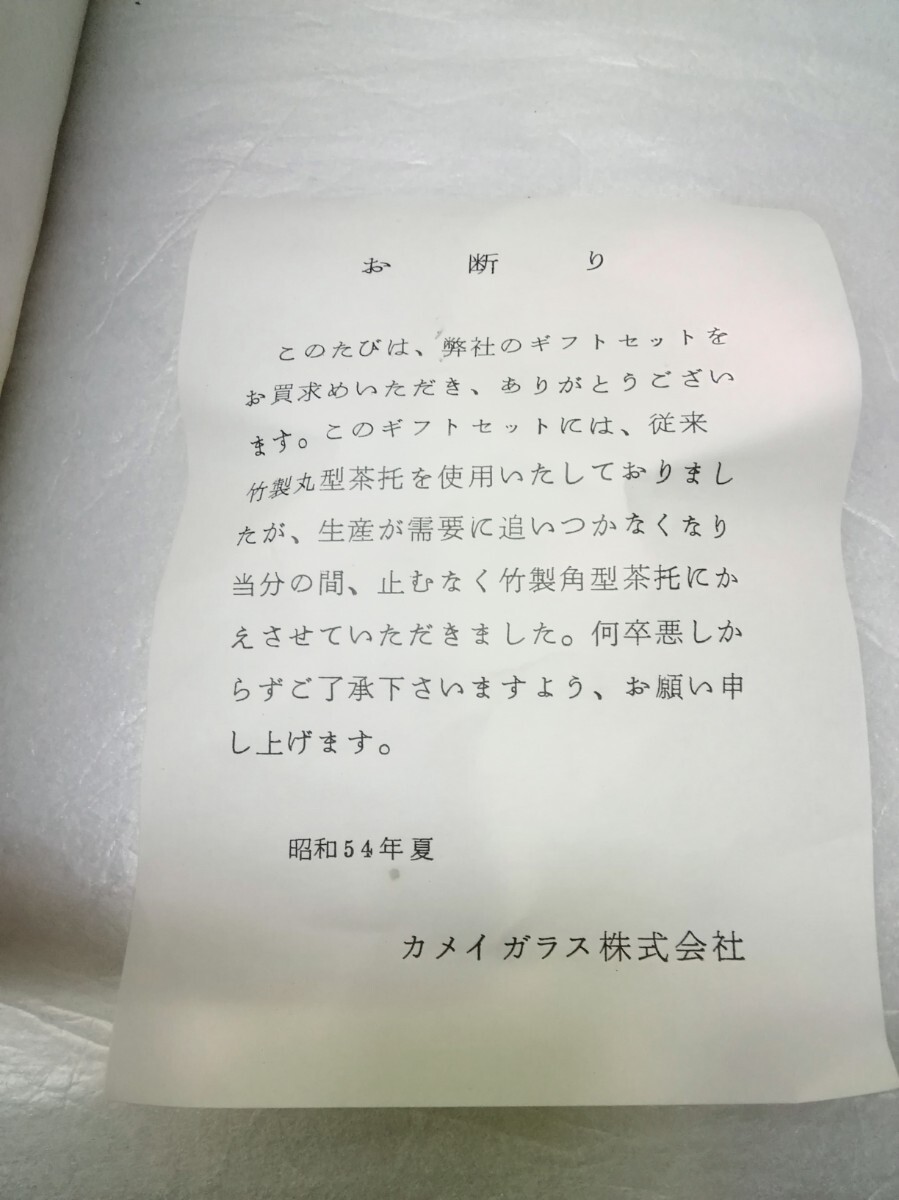 お断り
このたびは、弊社のギフトセットを
お買求めいただき、ありがとうござい
ます。このギフトセットには、従来
竹製丸型茶托を使用いたしておりまし
たが、生産が需要に追いつかなくなり
当分の間、止むなく竹製角型茶托にか
えさせていただきました。何卒悪しか
らずご了承下さいますよう、お願い申
し上げます。
昭和54年夏
カメイガラス株式会社